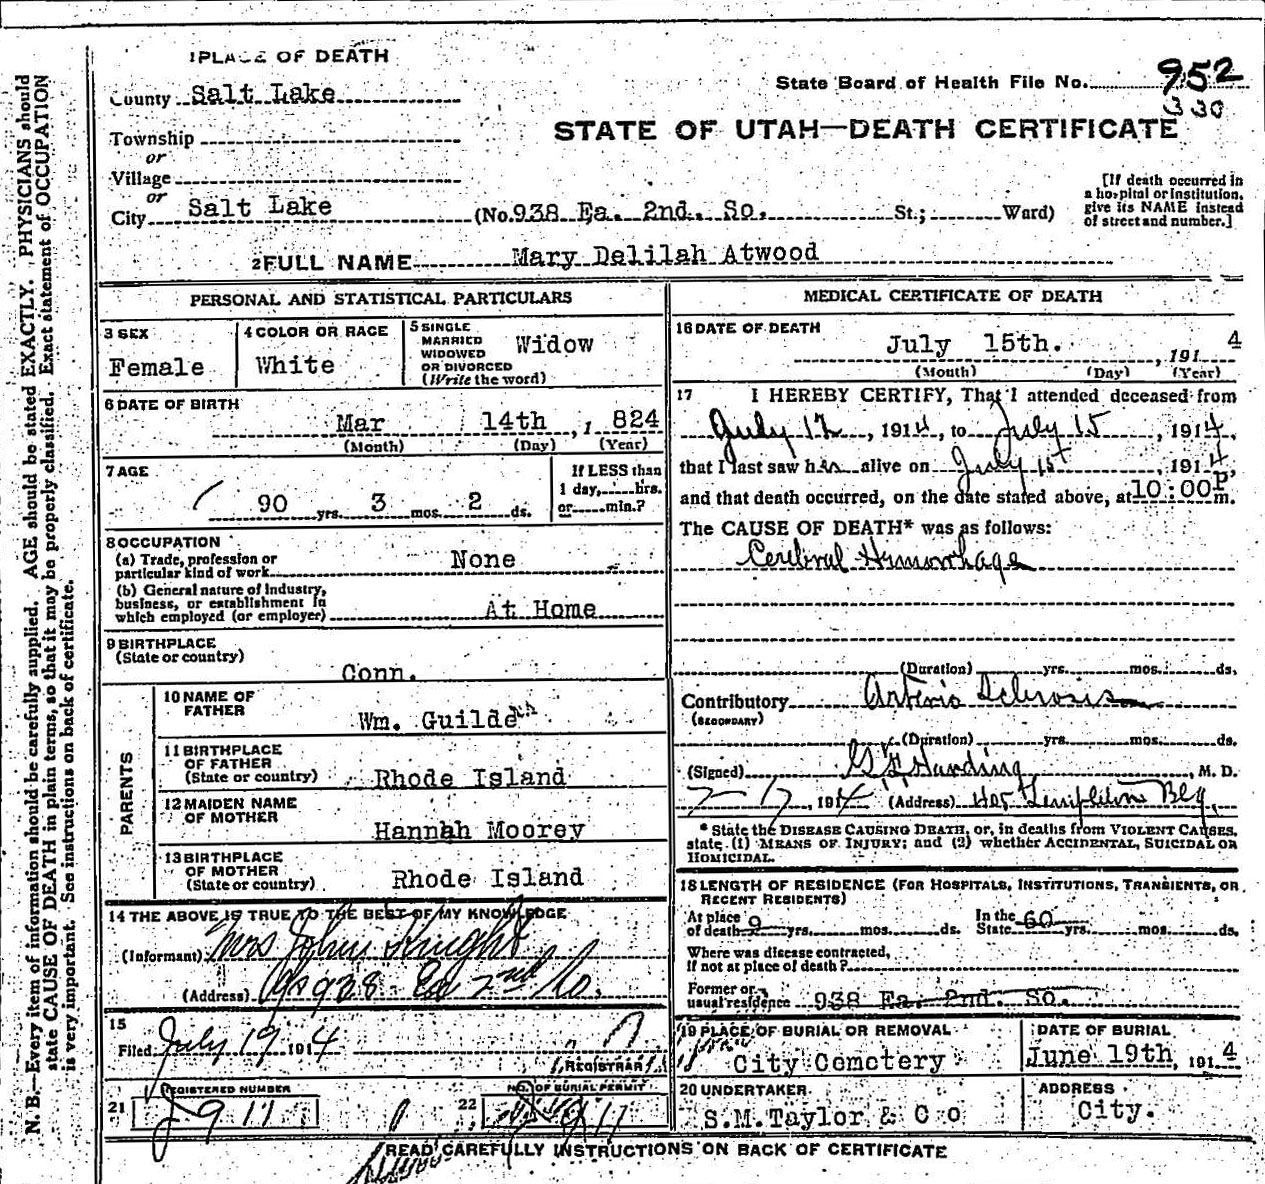 1 PLACE OF DEATH
County Salt Lake
State Board of Health File No. 952
330
Township
or
STATE OF UTAH—DEATH CERTIFICATE
Village
or
City Salt Lake (No. 938 Ea. 2nd. So. St.; Ward)
[If death occurred in a hospital or institution, give its NAME instead of street and number.]
2 FULL NAME Mary Delilah Atwood
PERSONAL AND STATISTICAL PARTICULARS
3 SEX
Female
4 COLOR OR RACE
White
5 SINGLE
MARRIED
WIDOWED
OR DIVORCED
(Write the word)
Widow
6 DATE OF BIRTH
Mar 14th , 1 824
(Month) (Day) (Year)
7 AGE
90 yrs. 3 mos. 2 ds.
If LESS than
1 day, hrs.
or min.?
8 OCCUPATION
(a) Trade, profession or
particular kind of work None
(b) General nature of Industry,
business, or establishment in
which employed (or employer) At Home
9 BIRTHPLACE
(State or country)
Conn.
PARENTS
10 NAME OF
FATHER
Wm. Guilde
11 BIRTHPLACE
OF FATHER
(State or country) Rhode Island
12 MAIDEN NAME
OF MOTHER
Hannah Moorey
13 BIRTHPLACE
OF MOTHER
(State or country) Rhode Island
14 THE ABOVE IS TRUE TO THE BEST OF MY KNOWLEDGE
(Informant) Mrs John Knight
(Address) 938 Ea 2nd So.
15
Filed July 17 1914
REGISTRAR
21 REGISTERED NUMBER
J911
22 NO. OF BURIAL PERMIT
MEDICAL CERTIFICATE OF DEATH
16 DATE OF DEATH
July 15th. , 191 4
(Month) (Day) (Year)
17 I HEREBY CERTIFY, That I attended deceased from
July 12, 1914, to July 15, 1914,
that I last saw her alive on July 15, 1914,
and that death occurred, on the date stated above, at 10:00P m.
The CAUSE OF DEATH* was as follows:
Cerebral Hemorrhage
(Duration) yrs. mos. ds.
Contributory Arterio Sclerosis
(SECONDARY)
(Duration) yrs. mos. ds.
(Signed) Harding, M. D.
7-17, 1914 (Address) 405 Templeton Blg.
* State the DISEASE CAUSING DEATH, or, in deaths from VIOLENT CAUSES,
state (1) MEANS OF INJURY; and (2) whether ACCIDENTAL, SUICIDAL OR
HOMICIDAL.
18 LENGTH OF RESIDENCE (FOR HOSPITALS, INSTITUTIONS, TRANSIENTS, OR
RECENT RESIDENTS)
At place
of death 9 yrs. mos. ds.
In the
State 60 yrs. mos. ds.
Where was disease contracted,
if not at place of death?
Former or
usual residence 938 Ea. 2nd. So.
19 PLACE OF BURIAL OR REMOVAL
City Cemetery
DATE OF BURIAL
June 19th, 191 4
20 UNDERTAKER
S.M.Taylor & C o
ADDRESS
City.
READ CAREFULLY INSTRUCTIONS ON BACK OF CERTIFICATE
N. B.—Every item of information should be carefully supplied. AGE should be stated EXACTLY. PHYSICIANS should
state CAUSE OF DEATH in plain terms, so that it may be properly classified. Exact statement of OCCUPATION
is very important. See instructions on back of certificate.